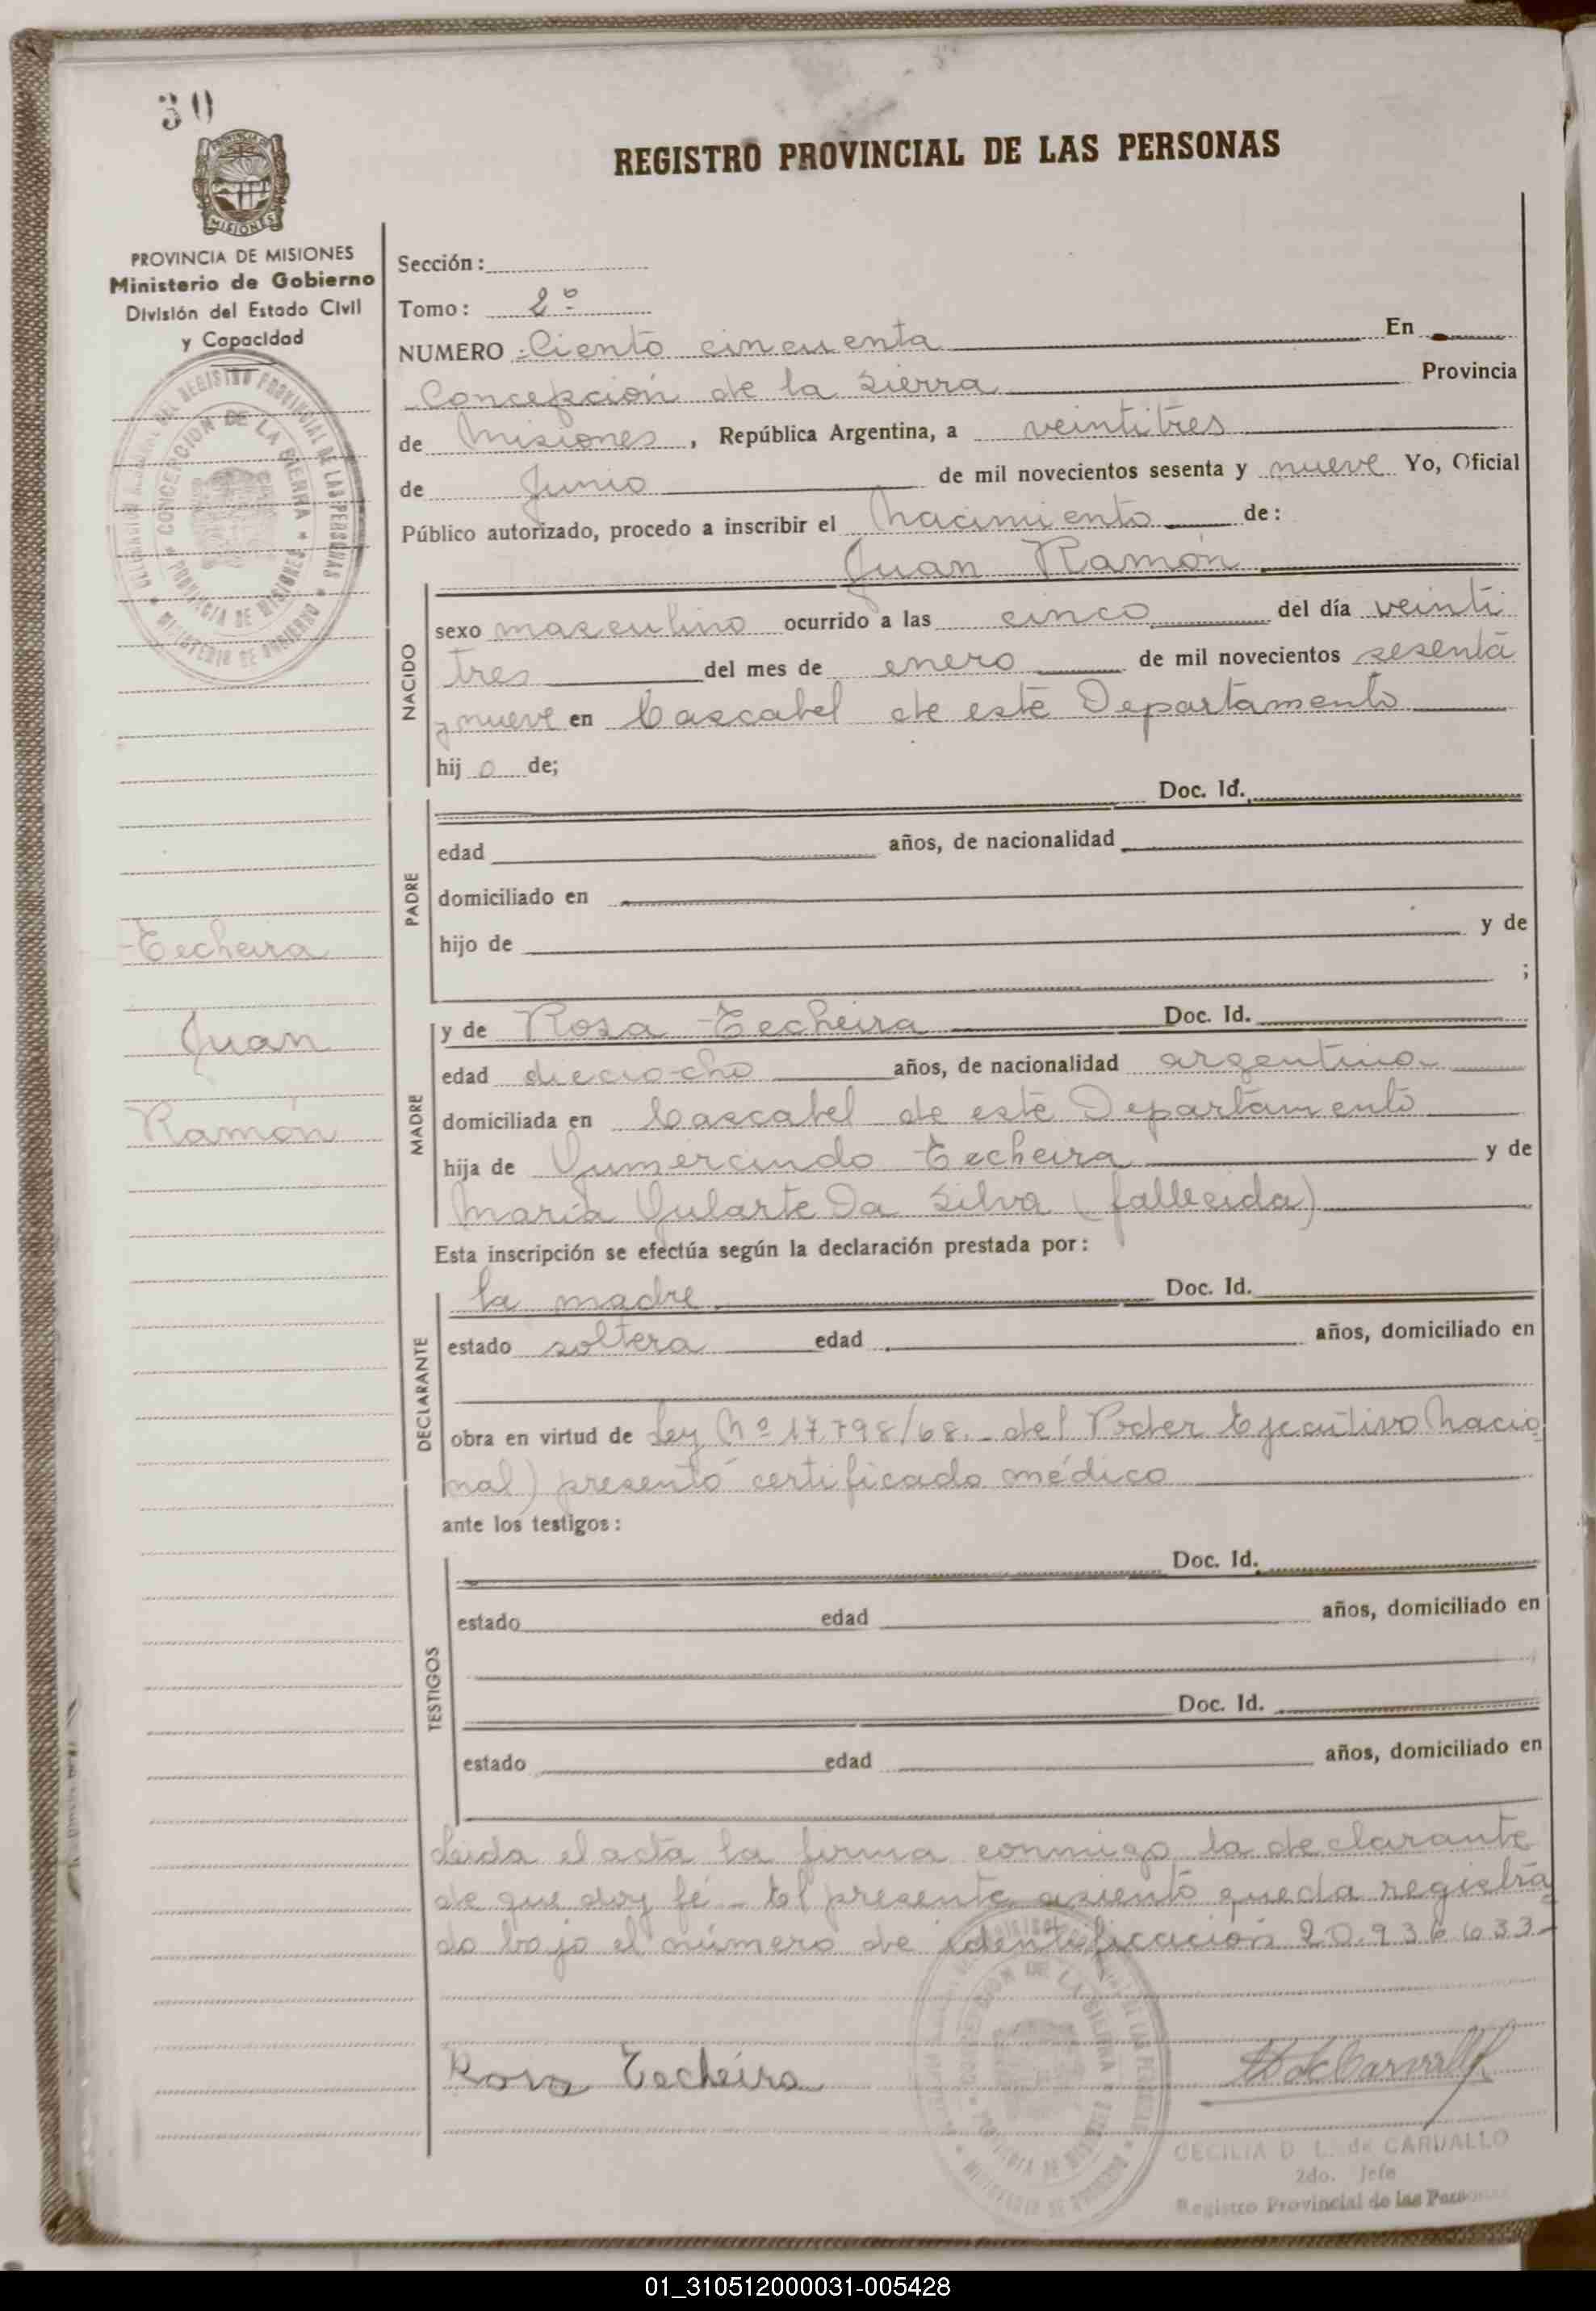 30
REGISTRO PROVINCIAL DE LAS PERSONAS
PROVINCIA DE MISIONES
Ministerio de Gobierno
División del Estado Civil
y Capacidad
CONCEPCION DE LA SIERRA
PROVINCIA DE MISIONES
MINISTERIO DE GOBIERNO
Techeira
Juan
Ramón
Sección:
Tomo: 2º
NUMERO Ciento cincuenta En
Concepción de la Sierra Provincia
de Misiones, República Argentina, a veintitres
de Junio de mil novecientos sesenta y nueve Yo, Oficial
Público autorizado, procedo a inscribir el nacimiento de:
Juan Ramón
NACIDO
sexo masculino ocurrido a las cinco del día veinti
tres del mes de enero de mil novecientos sesenta
y nueve en Cascabel de este Departamento
hij o de;
PADRE
Doc. Id.
edad años, de nacionalidad
domiciliado en
hijo de y de
;
MADRE
y de Rosa Techeira Doc. Id.
edad dieciocho años, de nacionalidad argentina
domiciliada en Cascabel de este Departamento
hija de Gumercindo Techeira y de
María Gularte Da Silva (fallecida)
Esta inscripción se efectúa según la declaración prestada por:
DECLARANTE
la madre Doc. Id.
estado soltera edad años, domiciliado en
obra en virtud de Ley Nº 17.798/68.- del Poder Ejecutivo Nacio
nal) presentó certificado médico
ante los testigos:
TESTIGOS
Doc. Id.
estado edad años, domiciliado en
Doc. Id.
estado edad años, domiciliado en
Leida el acta la firma conmigo la declarante
de que doy fé - El presente asiento queda registra
do bajo el número de identificación 20.936.633-
Rosa Techeira
CECILIA D. L. de CARVALLO
2do. Jefe
Registro Provincial de las Personas
01_310512000031-005428